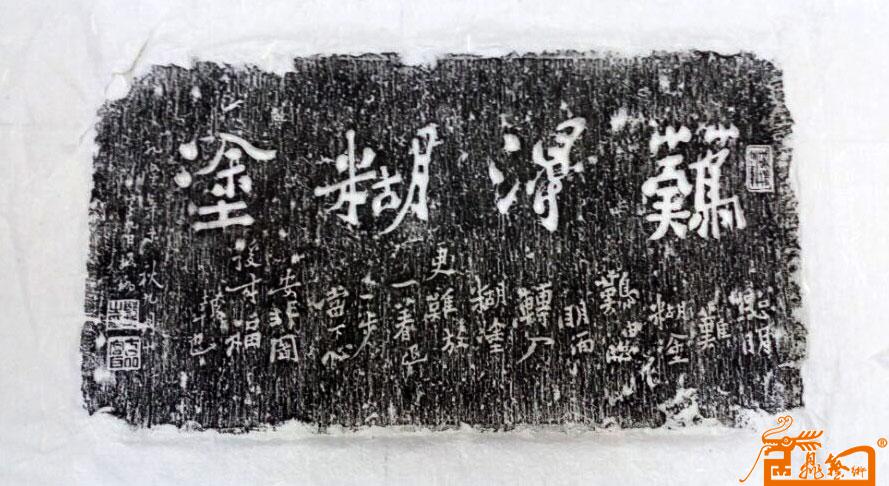 難得糊塗
聰明
難
糊塗尤
難由聰
明而
轉入
糊塗
更難放
一著退
一步
當下心
安非圖
後來福
報也
秋九月